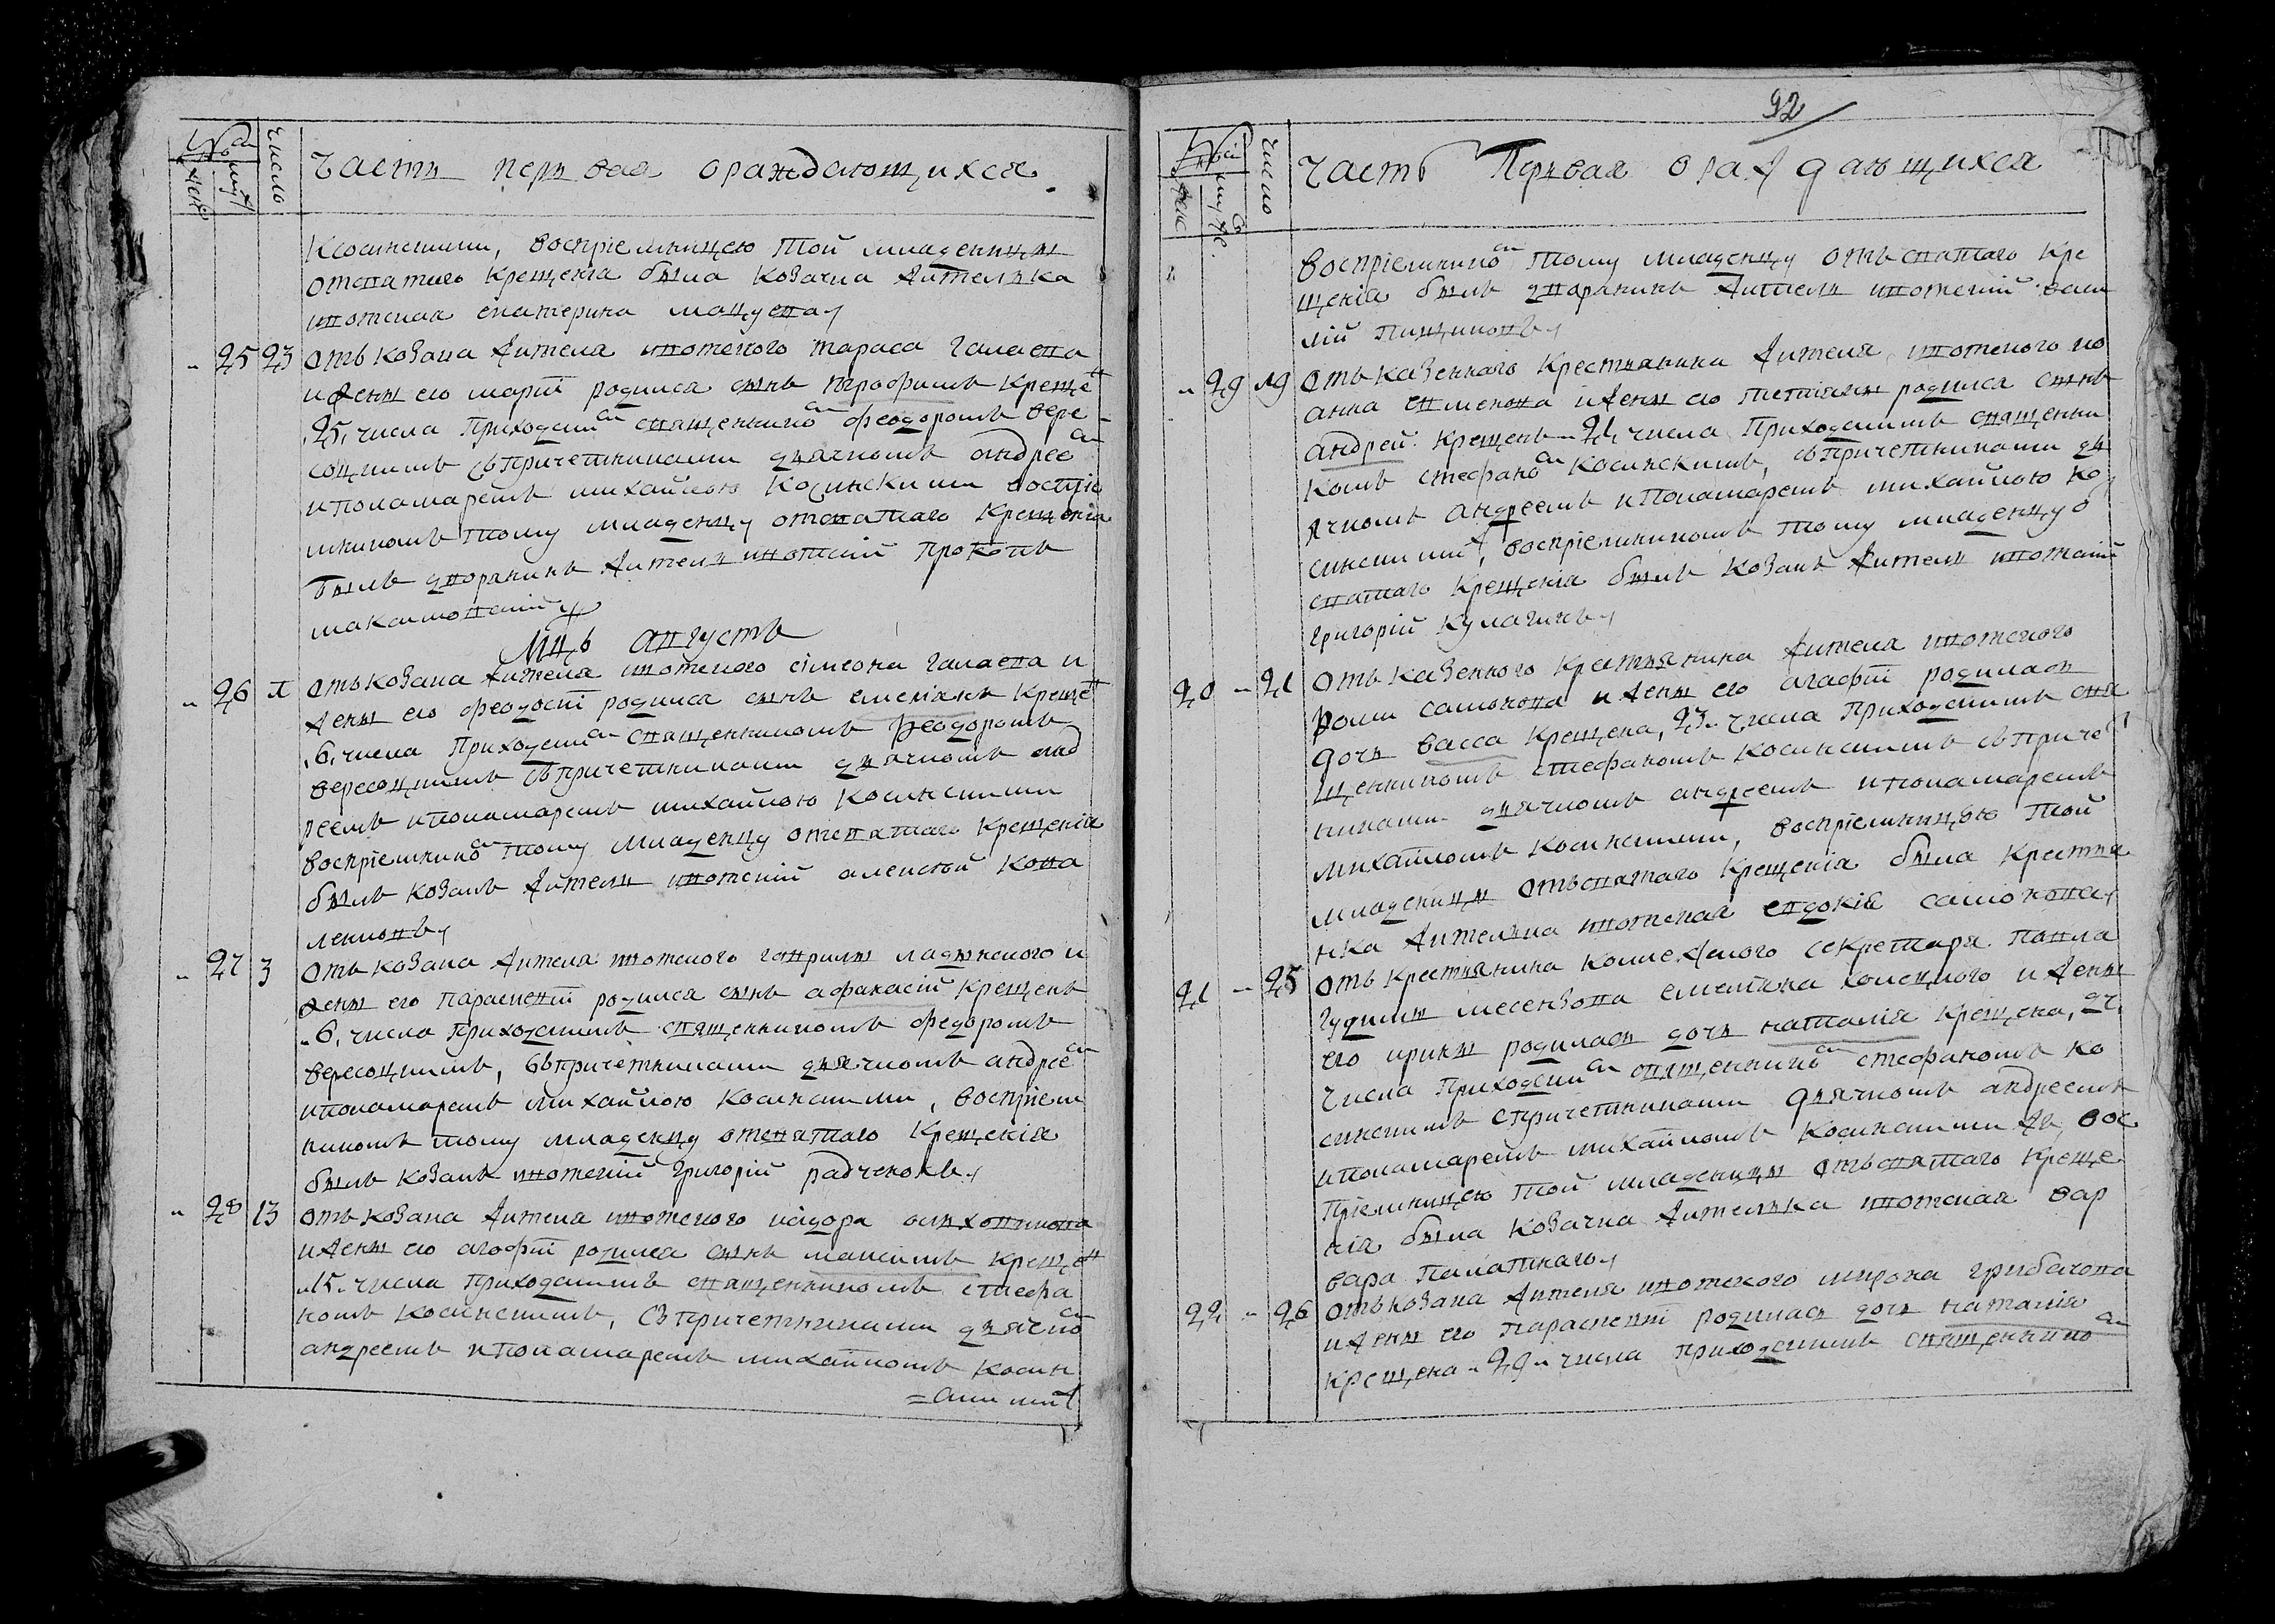 Часть первая о раждающихся
Число
Косинскими, восприемницею той младеницы
отсвятого крещенія была козачка жителька
ивотская екатерина
25 23 Отъ козака жителя ивотского тараса галаева
и жены его маріи родился сынъ трофимъ креще͞н
25, числа приходским священником феодоромъ вере
соцкимъ съ причетниками дьячкомъ андрее͞м
и пономаремъ михайлою Косинскими воспріе
мникомъ тому младенцу отсвятаго крещенія
былъ дворянинъ житель ивотскій прокопъ
Мцъ августъ
26 1 Отъ козака жителя ивотского сімеона галаева и
жены его феодосіи родился сынъ емеліянъ креще͞н
6, числа приходским священникомъ феодоромъ
вересоцкимъ съ причетниками дьячкомъ анд
реемъ и пономаремъ михайлою Косинскими
воспріемником тому младенцу отсвятаго крещенія
былъ козакъ житель ивотскій алексѣй кова
ленковъ
27 3 Отъ козака жителя ивотского гаврилы ладынского и
жены его параскевіи родился сынъ афанасій крещенъ
6, числа приходскимъ священникомъ федоромъ
вересоцкимъ, съ причетниками дьячкомъ андрее͞м
и пономаремъ михайлою Косинскими, воспріем
никомъ тому младенцу отсвятаго крещенія
былъ козакъ ивотскій григорій радченокъ
28 13 Отъ козака жителя ивотского
и жены его агофіи родился сынъ максимъ креще͞н
15. числа приходскимъ священникомъ стефа
номъ косинскимъ, съ причетниками дьячко͞м
андреемъ и пономаремъ михайломъ косин
=скими
92
Число
Часть Первая о раждающихся
воспріемником тому младенцу отъ святаго кре
щенія былъ дворянинъ житель ивотскій васи
лій
29 19 Отъ казенного крестьянина жителя ивотского ио
анна и жены его татіяны родился сынъ
андрей крещенъ 21, числа приходскимъ священни
комъ стефано͞м косинскимъ, съ причетниками дь
ячкомъ андреемъ и пономаремъ михайлою ко
синскими, воспріемникомъ тому младенцу о
святаго крещенія былъ козакъ житель ивотскій
григорій кулагинъ
20 21 Отъ казенного крестьянина жителя ивотского
романа самохова и жены его агафіи родилась
дочь васса крещена, 23 числа приходскимъ свя
щенникомъ стефаномъ косинскимъ съ приче͞т
никами дьячкомъ андреемъ и пономаремъ
михайломъ косинскими, воспріемницею той
младеницы отъ святаго крещенія была крестья
нка жителька ивотская евдокія самохова
21 25 Отъ крестьянина коллежского секретаря павла
и жены
его ирины родилась дочь наталія крещена,
числа приходским священником стефаномъ ко
синскимъ с причетниками дьячкомъ андреемъ
и пономаремъ михайломъ косинскими же, вос
пріемницею той младеницы отъ святаго креще
нія была козачка жителька ивотская вар
вара
22 26 Отъ козака жителя ивотского мирона грибачова
и жены его параскевіи родилась дочь наталія
крещена 29 числа приходскимъ священнико͞м